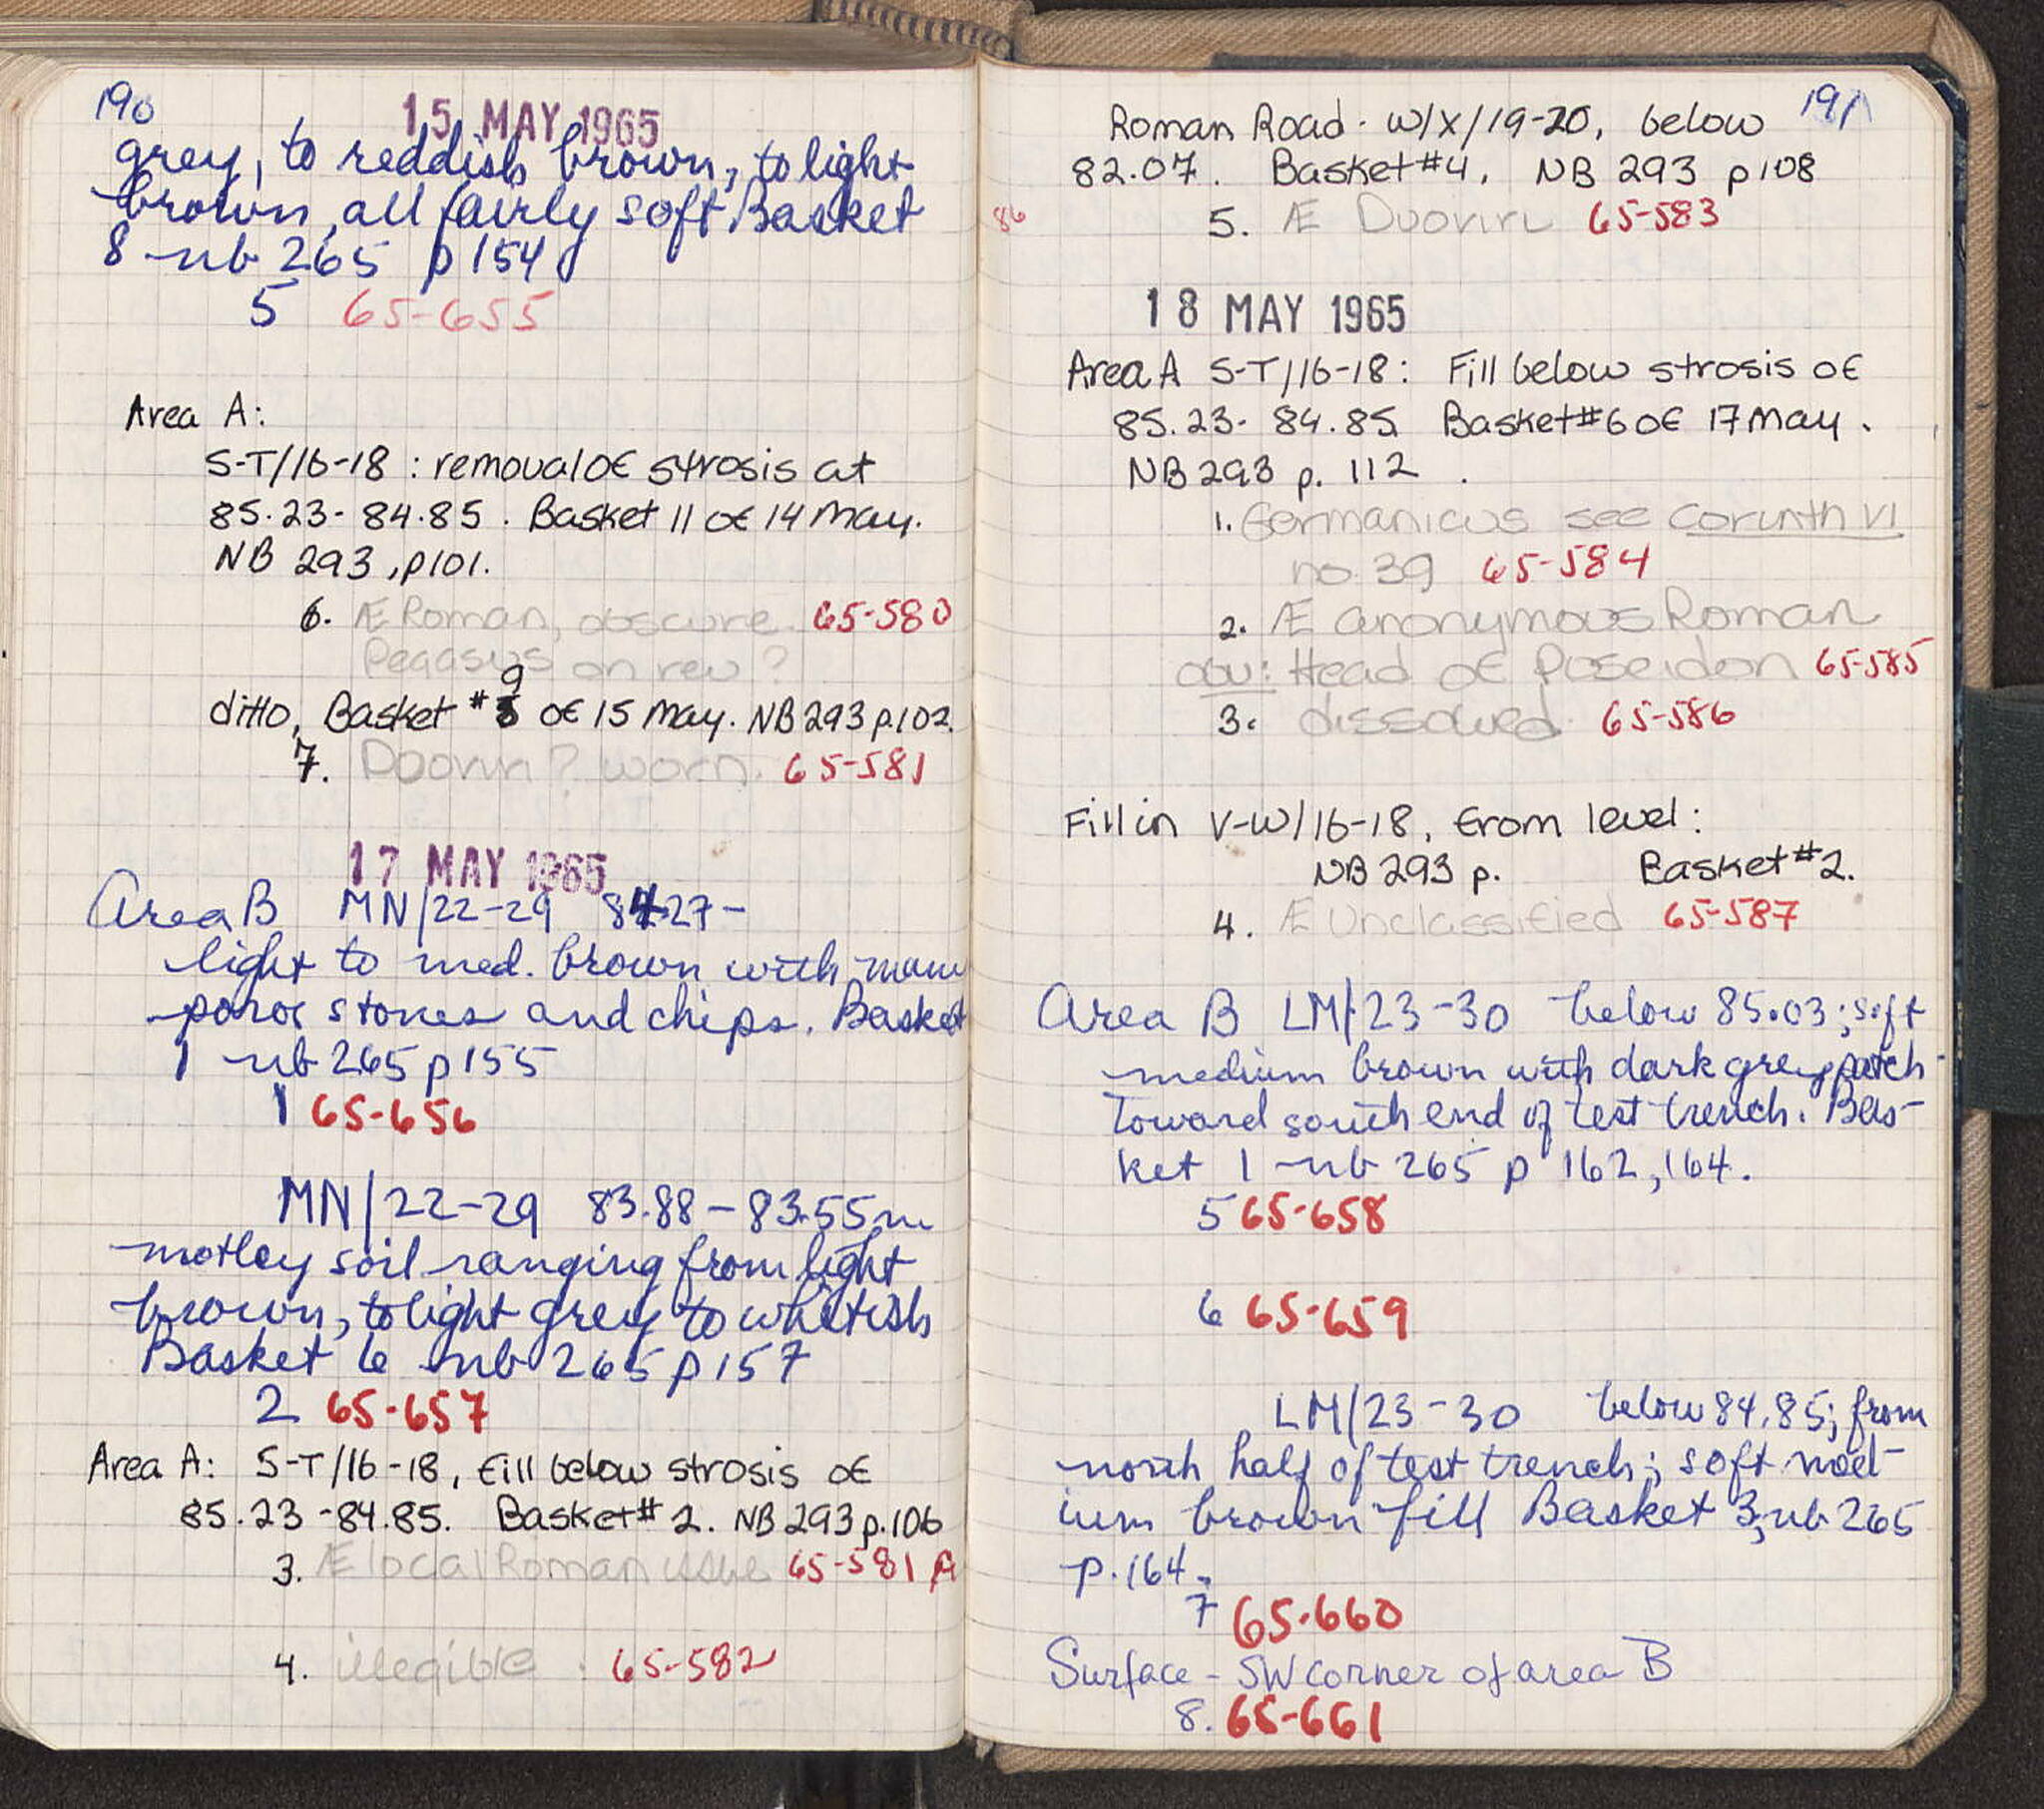 190
15 MAY 1965
grey, to reddish brown, to light
brown, all fairly soft Basket
8 nb 265 p 154
5 65-655
Area A:
S-T/16-18 : removal of strosis at
85.23-84.85. Basket 11 of 14 May.
NB 293, p101.
6. Æ Roman, obscure. 65-580
Pegasus on rev?
9
ditto, Basket # of 15 May. NB 293 p.102.
7. ? worn. 65-581
17 MAY 1965
Area B MN/22-29 84.27-
light to med. brown with many
poros stones and chips. Basket
1 nb 265 p 155
1 65-656
MN/22-29 83.88-83.55m
motley soil ranging from light
brown, to light grey to whitish
Basket 6 nb 265 p 157
2 65-657
Area A: S-T/16-18, fill below strosis of
85.23-84.85. Basket # 2. NB 293 p.106
3. Æ local Roman issue 65-581 A
4. illegible. 65-582
191
Roman Road. W/X/19-20, below
82.07. Basket #4. NB 293 p108
86
5. Æ Duoviri 65-583
18 MAY 1965
Area A S-T/16-18: Fill below strosis of
85.23-84.85 Basket #6 of 17 May.
NB 293 p. 112.
1. Germanicus see Corinth VI
no. 39 65-584
2. Æ anonymous Roman
obv: Head of Poseidon 65-585
3. dissolved. 65-586
Fill in V-W/16-18, from level:
NB 293 p. Basket #2.
4. Æ Unclassified 65-587
Area B LM/23-30 below 85.03; soft
medium brown with dark grey patch
toward south end of test trench. Bas-
ket 1 nb 265 p 162, 164.
5 65-658
6 65-659
LM/23-30 below 84.85; from
north half of test trench; soft med-
ium brown fill Basket 3, nb 265
p. 164.
7 65-660
Surface - SW corner of area B
8. 65-661